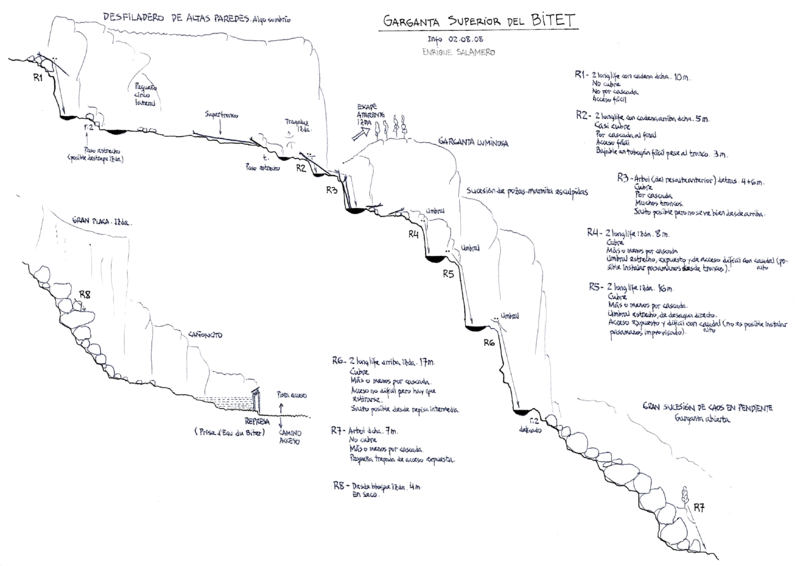 DESFILADERO DE ALTAS PAREDES. Algo sombrío
GARGANTA SUPERIOR DEL BITET
Info 02.08.08
ENRIQUE SALAMERO
R1
Pequeño
circo
lateral
r.2
Paso estrecho
(posible destrepe Izda.)
Supertronco
Tragaluz
Izda.
Paso estrecho
R2
R3
ESCAPE
APARENTE
IZDA
GARGANTA LUMINOSA
Sucesión de pozas-marmita esculpidas
Umbral
R4
Umbral
R5
Umbral
R6
r.2
delicado
R1- 2 longlife con cadena dcha. 10 m.
No cubre
No por cascada
Acceso fácil
R2- 2 longlife con cadena, arriba dcha. 5 m.
Casi cubre
Por cascada, al final
Acceso fácil
Bajable en tobogán fácil pese al tronco. 3 m.
R3- Arbol (del resalte anterior) detras. 4+6 m.
Cubre
Por cascada
Muchos troncos.
Salto posible pero no se ve bien desde arriba.
R4- 2 longlife Izda. 8 m.
Cubre
Más o menos por cascada
Umbral estrecho, expuesto y de acceso difícil con caudal (po-
sible instalar pasamanos desde troncos). alto
R5- 2 longlife Izda. 16 m.
Cubre
Más o menos por cascada.
Umbral estrecho, de desagüe directo.
Acceso expuesto y difícil con caudal (no es posible instalar
pasamanos improvisado). alto
GRAN PLACA. Izda.
R8
CAÑONCITO
REPRESA
(Prise d'Eau du Bitet)
CAMINO
ACCESO
R6- 2 longlife arriba Izda. 17 m.
Cubre
Más o menos por cascada.
Acceso no difícil pero hay que
estirarse.
Salto posible desde repisa intermedia.
R7- Arbol dcha. 7 m.
No cubre
Más o menos por cascada
Pequeña trepada de acceso expuesta.
R8- Desde bloque Izda. 4 m.
En seco.
GRAN SUCESIÓN DE CAOS EN PENDIENTE
Garganta abierta
R7